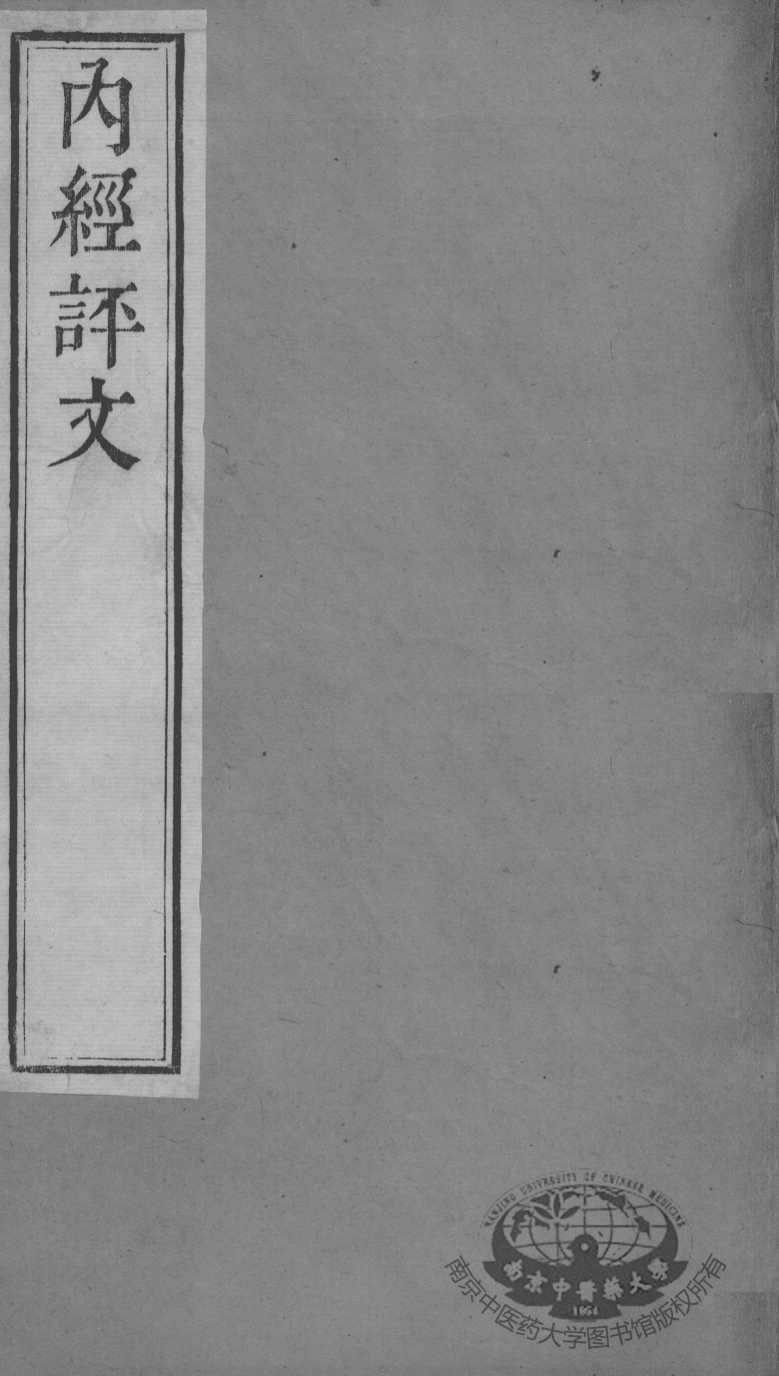 內經評文
NANJING UNIVERSITY OF CHINESE MEDICINE
南京中醫藥大學
1954
南京中医药大学图书馆版权所有